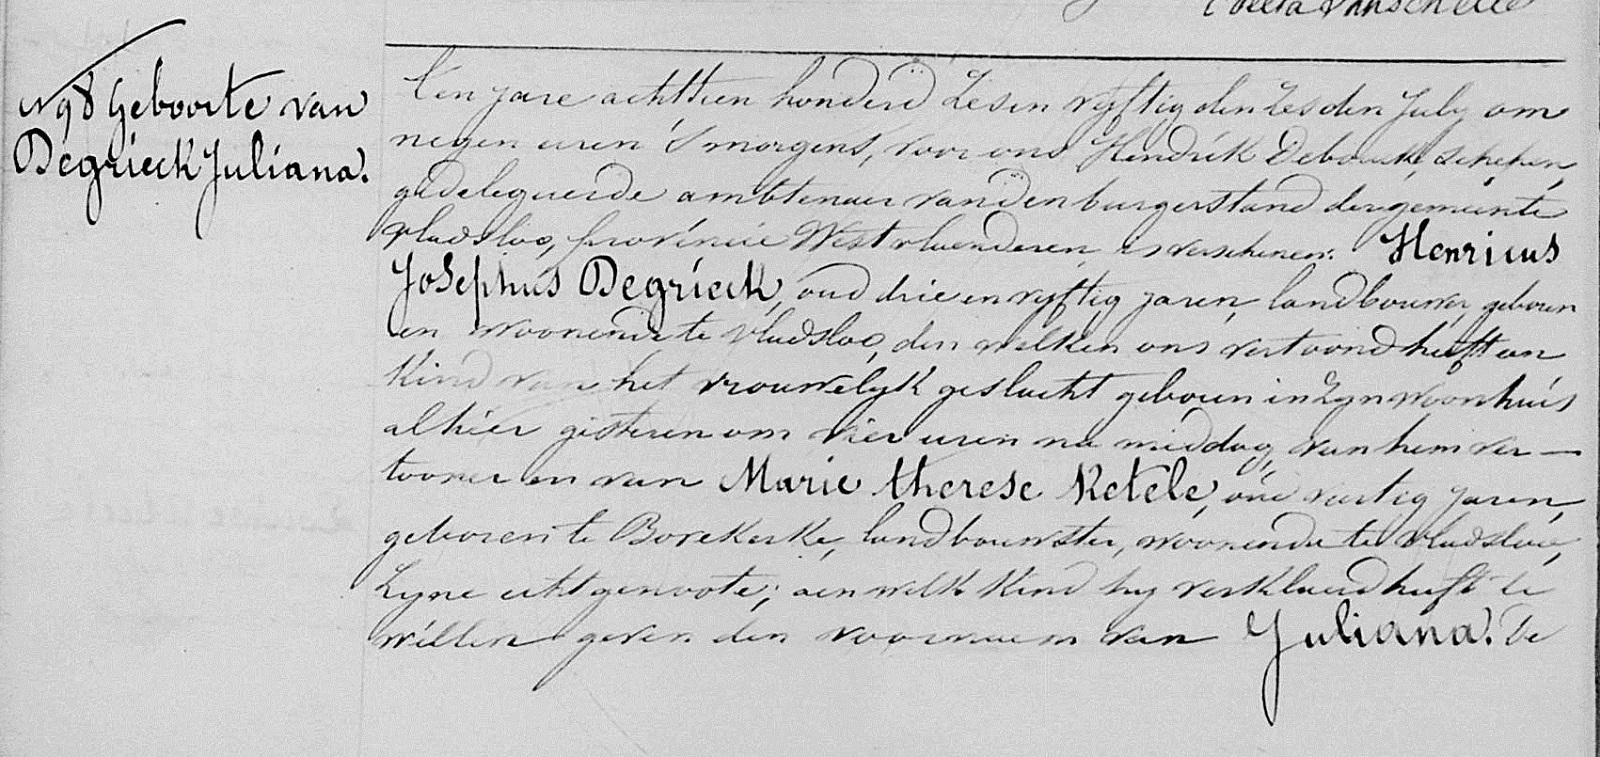 Coleta Vanschelle
N 98 Geboorte van
Degrieck Juliana.
Ten jare achttien honderd zesen vyftig den zesden July om
negen uren 's morgens, voor ons Hendrik Deboucke, schepen,
gedelegueerde ambtenaer van den burgerstand der gemeente
Vladsloo, provincie Westvlaenderen, is verschenen: Henricus
Josephus Degrieck, oud drie en vyftig jaren, landbouwer, geboren
en woonende te Vladsloo, den welken ons vertoond heeft een
kind van het vrouwelyk geslacht geboren in zyn woonhuis
alhier gisteren om vier uren na middag, van hem ver—
tooner en van Marie therese Ketele, oud veertig jaren,
geboren te Bovekerke, landbouwster, woonende te Vladsloo,
zyne echtgenoote; aen welk kind hy verklaerd heeft te
willen geven den voornaem van Juliana. De